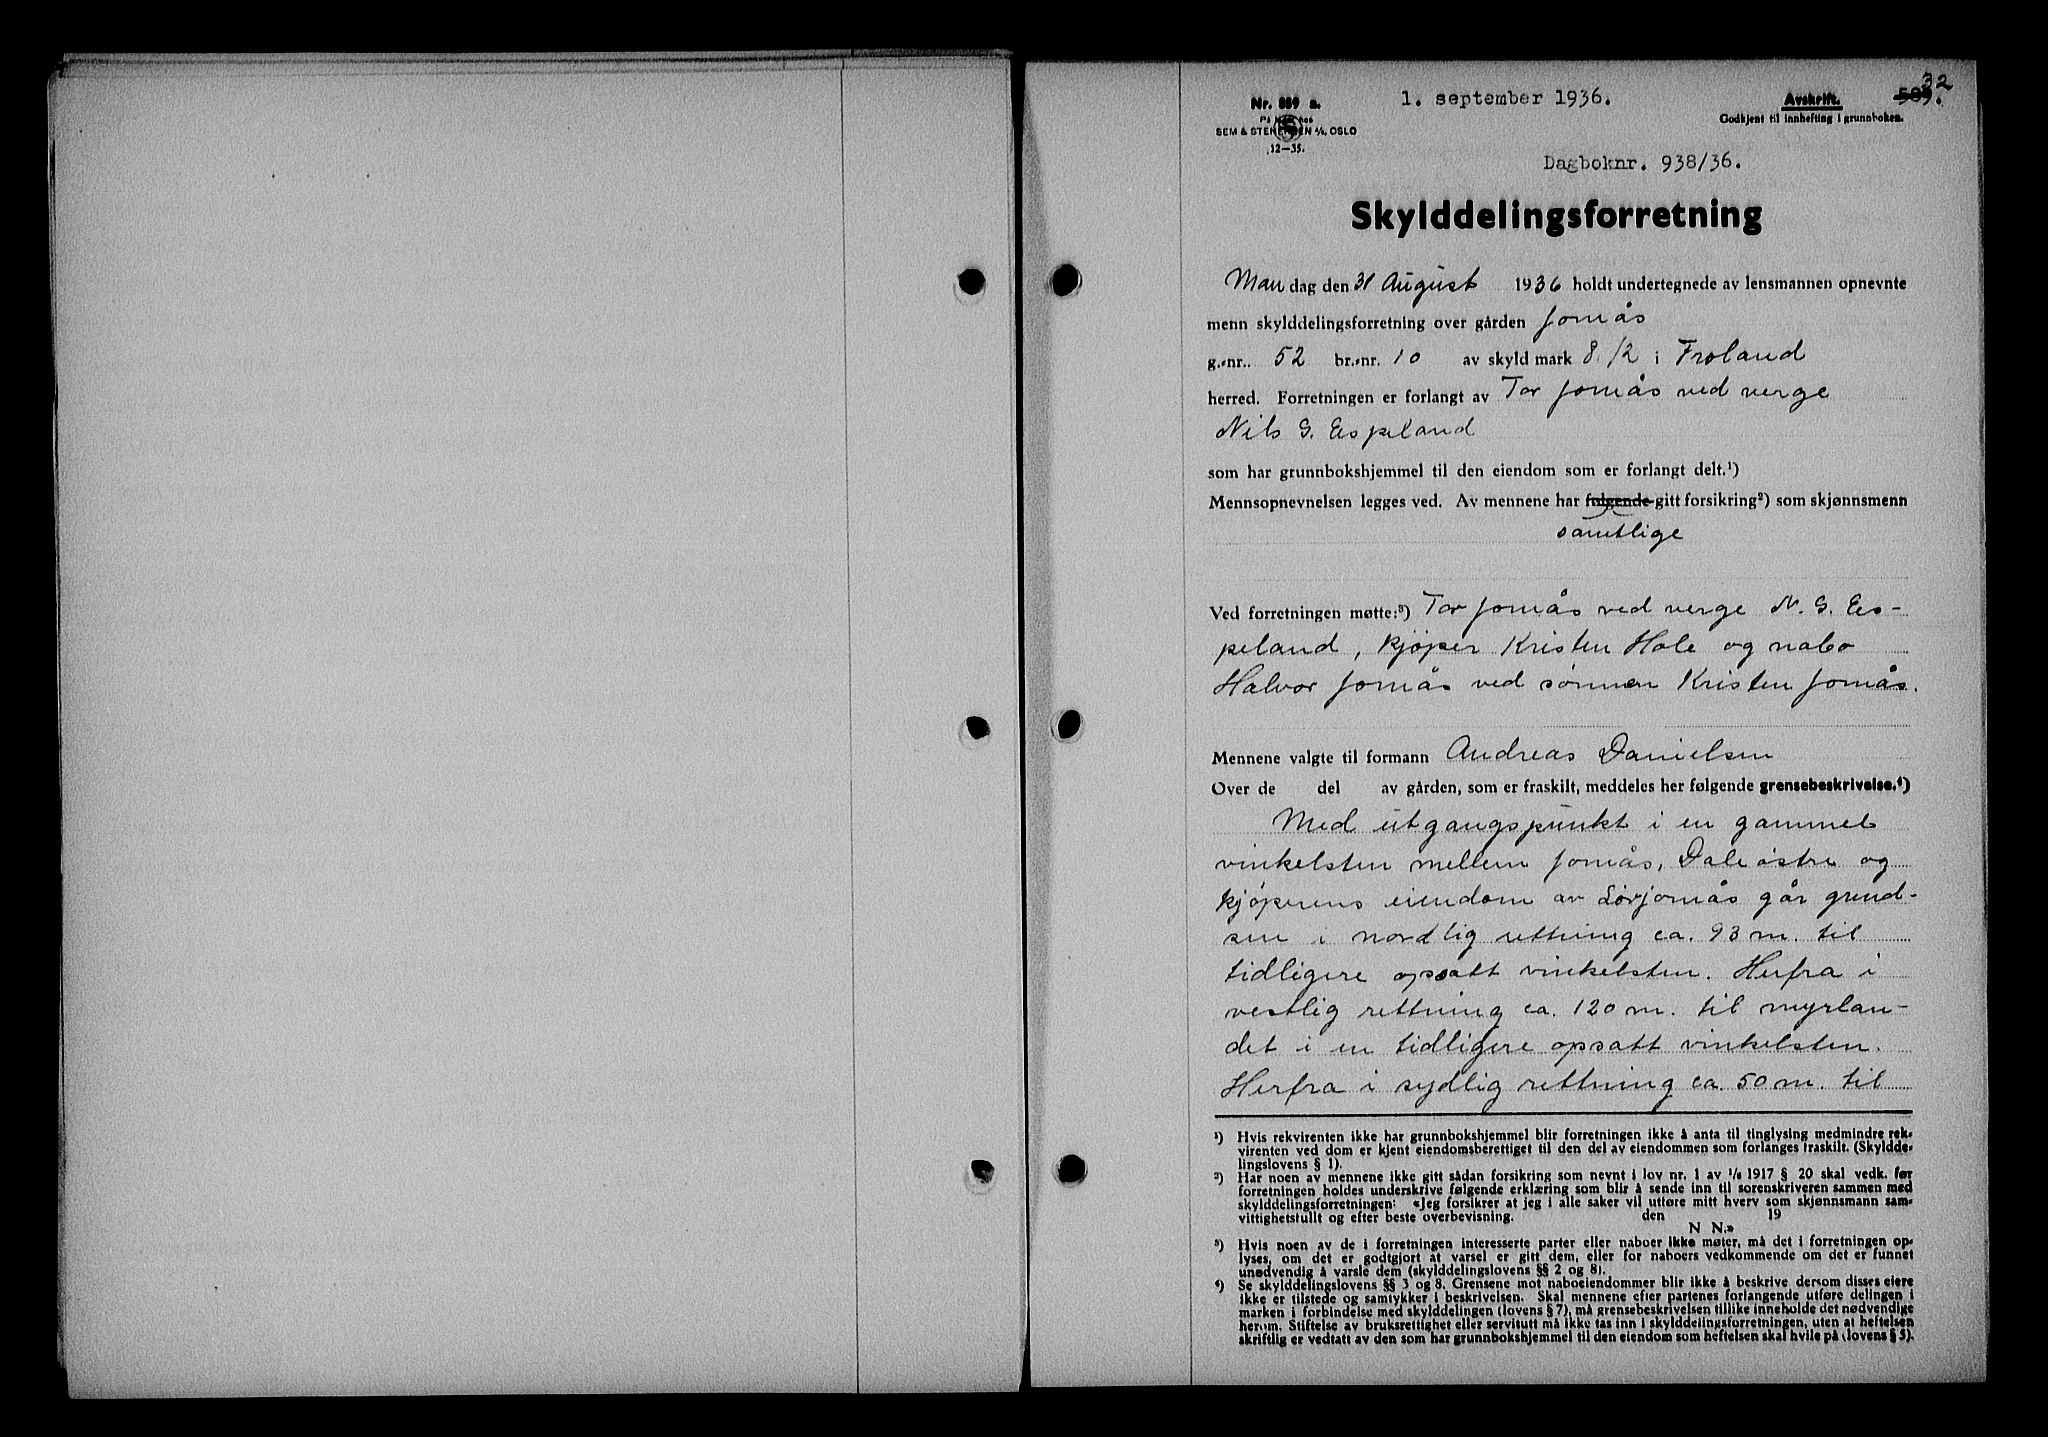 32
Nr. 889 a.
1. september 1936.
Avskrift.
589.
SEM & STENERSEN A/S, OSLO
Godkjent til innhefting i grunnboken.
12—35.
Dagboknr. 938/36.
Skylddelingsforretning
Man dag den 31 August 1936 holdt undertegnede av lensmannen opnevnte
menn skylddelingsforretning over gården Jomås
g.-nr. 52 br.-nr. 10 av skyld mark 8.12 i Froland
herred. Forretningen er forlangt av Tor Jomås ved verge
Nils G. Espeland
som har grunnbokshjemmel til den eiendom som er forlangt delt.¹)
Mennsopnevnelsen legges ved. Av mennene har følgende gitt forsikring²) som skjønnsmenn
samtlige
Ved forretningen møtte:³) Tor Jomås ved verge N. G. Es-
peland, kjøper Kristen Hole og nabo
Halvor Jomås ved sønnen Kristen Jomås.
Mennene valgte til formann Andreas Danielsen
Over de del av gården, som er fraskilt, meddeles her følgende grensebeskrivelse.⁴)
Med utgangspunkt i en gammel
vinkelsten mellem Jomås, Dale østre og
kjøperens eiendom av Sørjomås går grend-
sen i nordlig rettning ca. 93 m. til
tidligere opsatt vinkelsten. Herfra i
vestlig rettning ca. 120 m. til myrlan-
det i en tidligere opsatt vinkelsten.
Herfra i sydlig rettning ca. 50 m. til
¹) Hvis rekvirenten ikke har grunnbokshjemmel blir forretningen ikke å anta til tinglysing medmindre rek-
virenten ved dom er kjent eiendomsberettiget til den del av eiendommen som forlanges fraskilt. (Skyldde-
lingslovens § 1).
²) Har noen av mennene ikke gitt sådan forsikring som nevnt i lov nr. 1 av 1/6 1917 § 20 skal vedk. før
forretningen holdes underskrive følgende erklæring som blir å sende inn til sorenskriveren sammen med
skylddelingsforretningen: «Jeg forsikrer at jeg i alle saker vil utføre mitt hverv som skjønnsmann sam-
vittighetsfullt og efter beste overbevisning. den 19
N N.»
³) Hvis noen av de i forretningen interesserte parter eller naboer ikke møter, må det i forretningen op-
lyses, om det er godtgjort at varsel er gitt dem, eller for naboers vedkommende om det er funnet
unødvendig å varsle dem (skylddelingslovens §§ 2 og 8).
⁴) Se skylddelingslovens §§ 3 og 8. Grensene mot naboeiendommer blir ikke å beskrive dersom disses eiere
ikke er tilstede og samtykker i beskrivelsen. Skal mennene efter partenes forlangende utføre delingen i
marken i forbindelse med skylddelingen (lovens § 7), må grensebeskrivelsen tillike inneholde det nødvendige
herom. Stiftelse av bruksrettighet eller servitutt må ikke tas inn i skylddelingsforretningen, uten at heftelsen
skriftlig er vedtatt av den som har grunnbokshjemmel til den eiendom som heftelsen skal hvile på (lovens § 5).